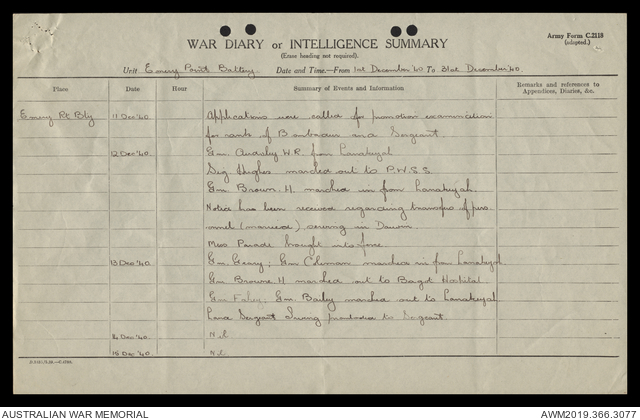 Army Form C.2118
(adapted.)
WAR DIARY or INTELLIGENCE SUMMARY
(Erase heading not required).
Unit Emery Point Battery Date and Time.—From 1st December '40 To 31st December '40.
Place Date Hour Summary of Events and Information Remarks and references to Appendices, Diaries, &c.
Emery Pt Bty 11 Dec '40. Applications were called for promotion examination
for rank of Bombardier and Sergeant
12 Dec '40. Gnr W.R. from Larrakeyah
Sig Hughes marched out to P.W.S.S.
Gnr Brown. H. marched in from Larrakeyah.
Notice has been received regarding transfer of per-
sonnel (married) serving in Darwin.
Mess Parade brought into force.
13 Dec '40. Gnr Geary; Gnr marched in from Larrakeyah
Gnr Browne H marched out to Bagot Hospital
Gnr Fahey; Gnr. Baily marched out to Larrakeyah
Lance Sergeant Irving promoted to Sergeant.
14 Dec '40. Nil
15 Dec '40. Nil
AUSTRALIAN WAR MEMORIAL
AWM2019.366.3077